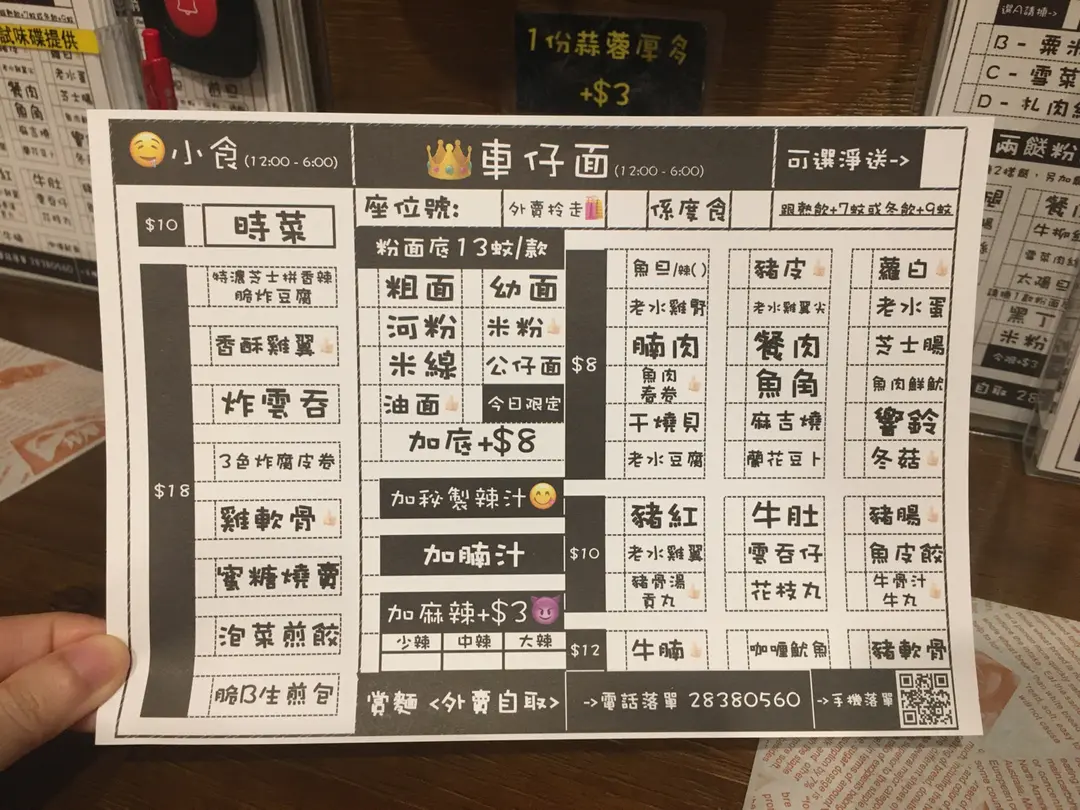 1份蒜蓉厚多
+$3
試味碟提供
小食(12:00 - 6:00)
$10
時菜
$18
特濃芝士拼香辣
脆炸豆腐
香酥雞翼
炸雲吞
3色炸腐皮卷
雞軟骨
蜜糖燒賣
泡菜煎餃
脆B生煎包
車仔面(12:00 - 6:00)
可選淨送->
座位號:
外賣拎走
係度食
跟熱飲+7蚊或冬飲+9蚊
粉面底13蚊/款
粗面
幼面
河粉
米粉
米線
公仔面
油面
今日限定
加底+$8
加秘製辣汁
加腩汁
加麻辣+$3
少辣
中辣
大辣
$8
魚旦/辣( )
豬皮
蘿白
老水雞腎
老水雞翼尖
老水蛋
腩肉
餐肉
芝士腸
魚肉
春卷
魚角
魚肉鮮魷
干燒貝
麻吉燒
響鈴
老水豆腐
蘭花豆卜
冬菇
$10
豬紅
牛肚
豬腸
老水雞翼
雲吞仔
魚皮餃
豬骨湯
貢丸
花枝丸
牛骨汁
牛丸
$12
牛腩
咖喱魷魚
豬軟骨
賞麵 <外賣自取>
->電話落單 28380560
->手機落單
B - 粟米
C - 雪菜
D - 扎肉
兩餸粉